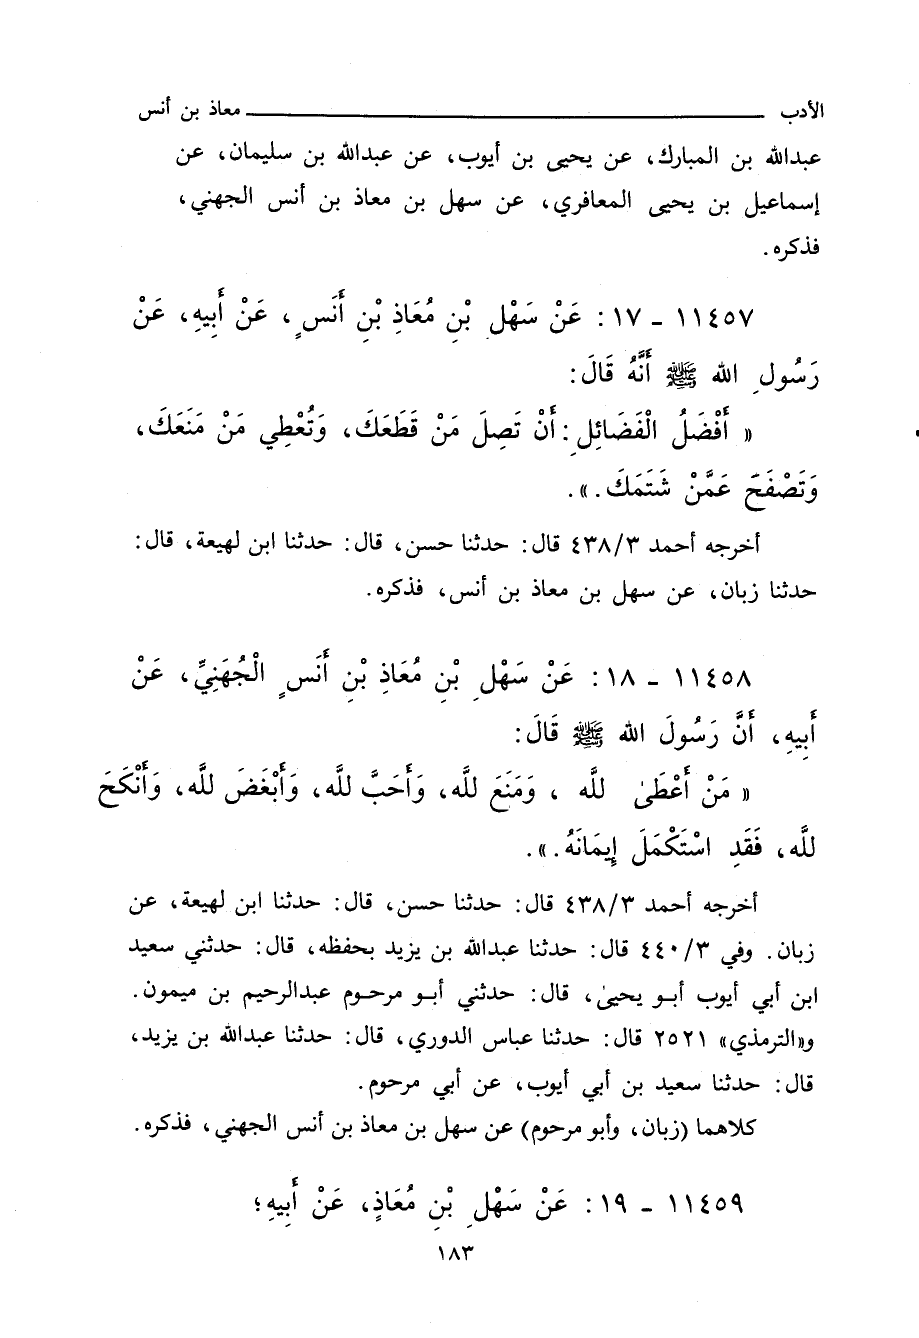 الأدب ــــــــــــــــــــــــــــــــ معاذ بن أنس
عبدالله بن المبارك، عن يحيى بن أيوب، عن عبدالله بن سليمان، عن
إسماعيل بن يحيى المعافري، عن سهل بن معاذ بن أنس الجهني،
فذكره.
١١٤٥٧ - ١٧: عَنْ سَهْلِ بْنِ مُعَاذِ بْنِ أَنَسٍ، عَنْ أَبِيهِ، عَنْ
رَسُولِ الله ﷺ أَنَّهُ قَالَ:
« أَفْضَلُ الْفَضَائِلِ: أَنْ تَصِلَ مَنْ قَطَعَكَ، وَتُعْطِي مَنْ مَنَعَكَ،
وَتَصْفَحَ عَمَّنْ شَتَمَكَ.».
أخرجه أحمد ٤٣٨/٣ قال: حدثنا حسن، قال: حدثنا ابن لهيعة، قال:
حدثنا زبان، عن سهل بن معاذ بن أنس، فذكره.
١١٤٥٨ - ١٨: عَنْ سَهْلِ بْنِ مُعَاذِ بْنِ أَنَسٍ الْجُهَنِيِّ، عَنْ
أَبِيهِ، أَنَّ رَسُولَ الله ﷺ قَالَ:
« مَنْ أَعْطَىٰ للَّه ، وَمَنَعَ للَّه، وَأَحَبَّ للَّه، وَأَبْغَضَ للَّه، وَأَنْكَحَ
للَّه، فَقَدِ اسْتَكْمَلَ إِيمَانَهُ.».
أخرجه أحمد ٤٣٨/٣ قال: حدثنا حسن، قال: حدثنا ابن لهيعة، عن
زبان. وفي ٤٤٠/٣ قال: حدثنا عبدالله بن يزيد بحفظه، قال: حدثني سعيد
ابن أبي أيوب أبو يحيىٰ، قال: حدثني أبو مرحوم عبدالرحيم بن ميمون.
و«الترمذي» ٢٥٢١ قال: حدثنا عباس الدوري، قال: حدثنا عبدالله بن يزيد،
قال: حدثنا سعيد بن أبي أيوب، عن أبي مرحوم.
كلاهما (زبان، وأبو مرحوم) عن سهل بن معاذ بن أنس الجهني، فذكره.
١١٤٥٩ - ١٩: عَنْ سَهْلِ بْنِ مُعَاذٍ، عَنْ أَبِيهِ؛
١٨٣